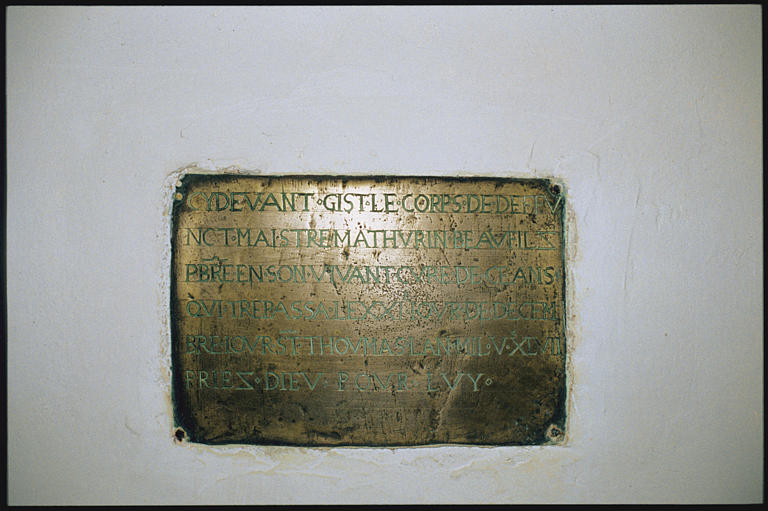 CY·DEVANT·GIST·LE·CORPS·DE·DEFFV
NCT·MAISTRE·MATHVRIN·BEAVFILZ
PBRE EN·SON·VIVANT·CVRE·DE·CRANS
QVI·TREPASSA·LE XXI IOVR·DE·DECEM
BRE IOVR ST THOVMAS LAN MIL·V·XLVII
PRIEZ·DIEV·POVR·LVY·